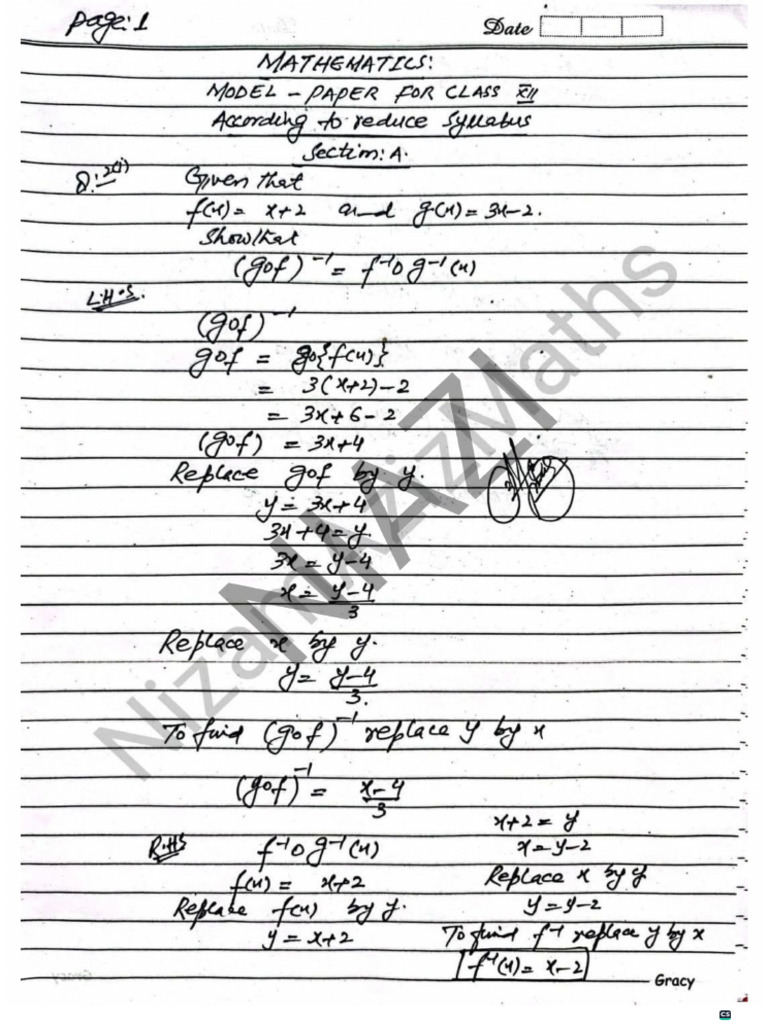 Page:1
Date
MATHEMATICS:
MODEL - PAPER FOR CLASS XII
According to reduce Syllabus
Section: A.
Q:2(i) Given that
f(x) = x+2 and g(x) = 3x-2.
Show that
(gof)⁻¹ = f⁻¹o g⁻¹(x)
L.H.S.
(gof)⁻¹
gof = go{f(x)}
= 3(x+2)-2
= 3x+6-2
(gof) = 3x+4
Replace gof by y.
y = 3x+4
3x+4=y.
3x = y-4
x = y-4/3
Replace x by y.
y = y-4/3.
To find (gof)⁻¹ replace y by x
(gof)⁻¹ = x-4/3
R.H.S f⁻¹o g⁻¹(x)
f(x) = x+2
Replace f(x) by y.
y = x+2
x+2 = y
x = y-2
Replace x by y
y = y-2
To find f⁻¹ replace y by x
f⁻¹(x) = x-2
Gracy
NIAZI
Nizamani Maths
CS